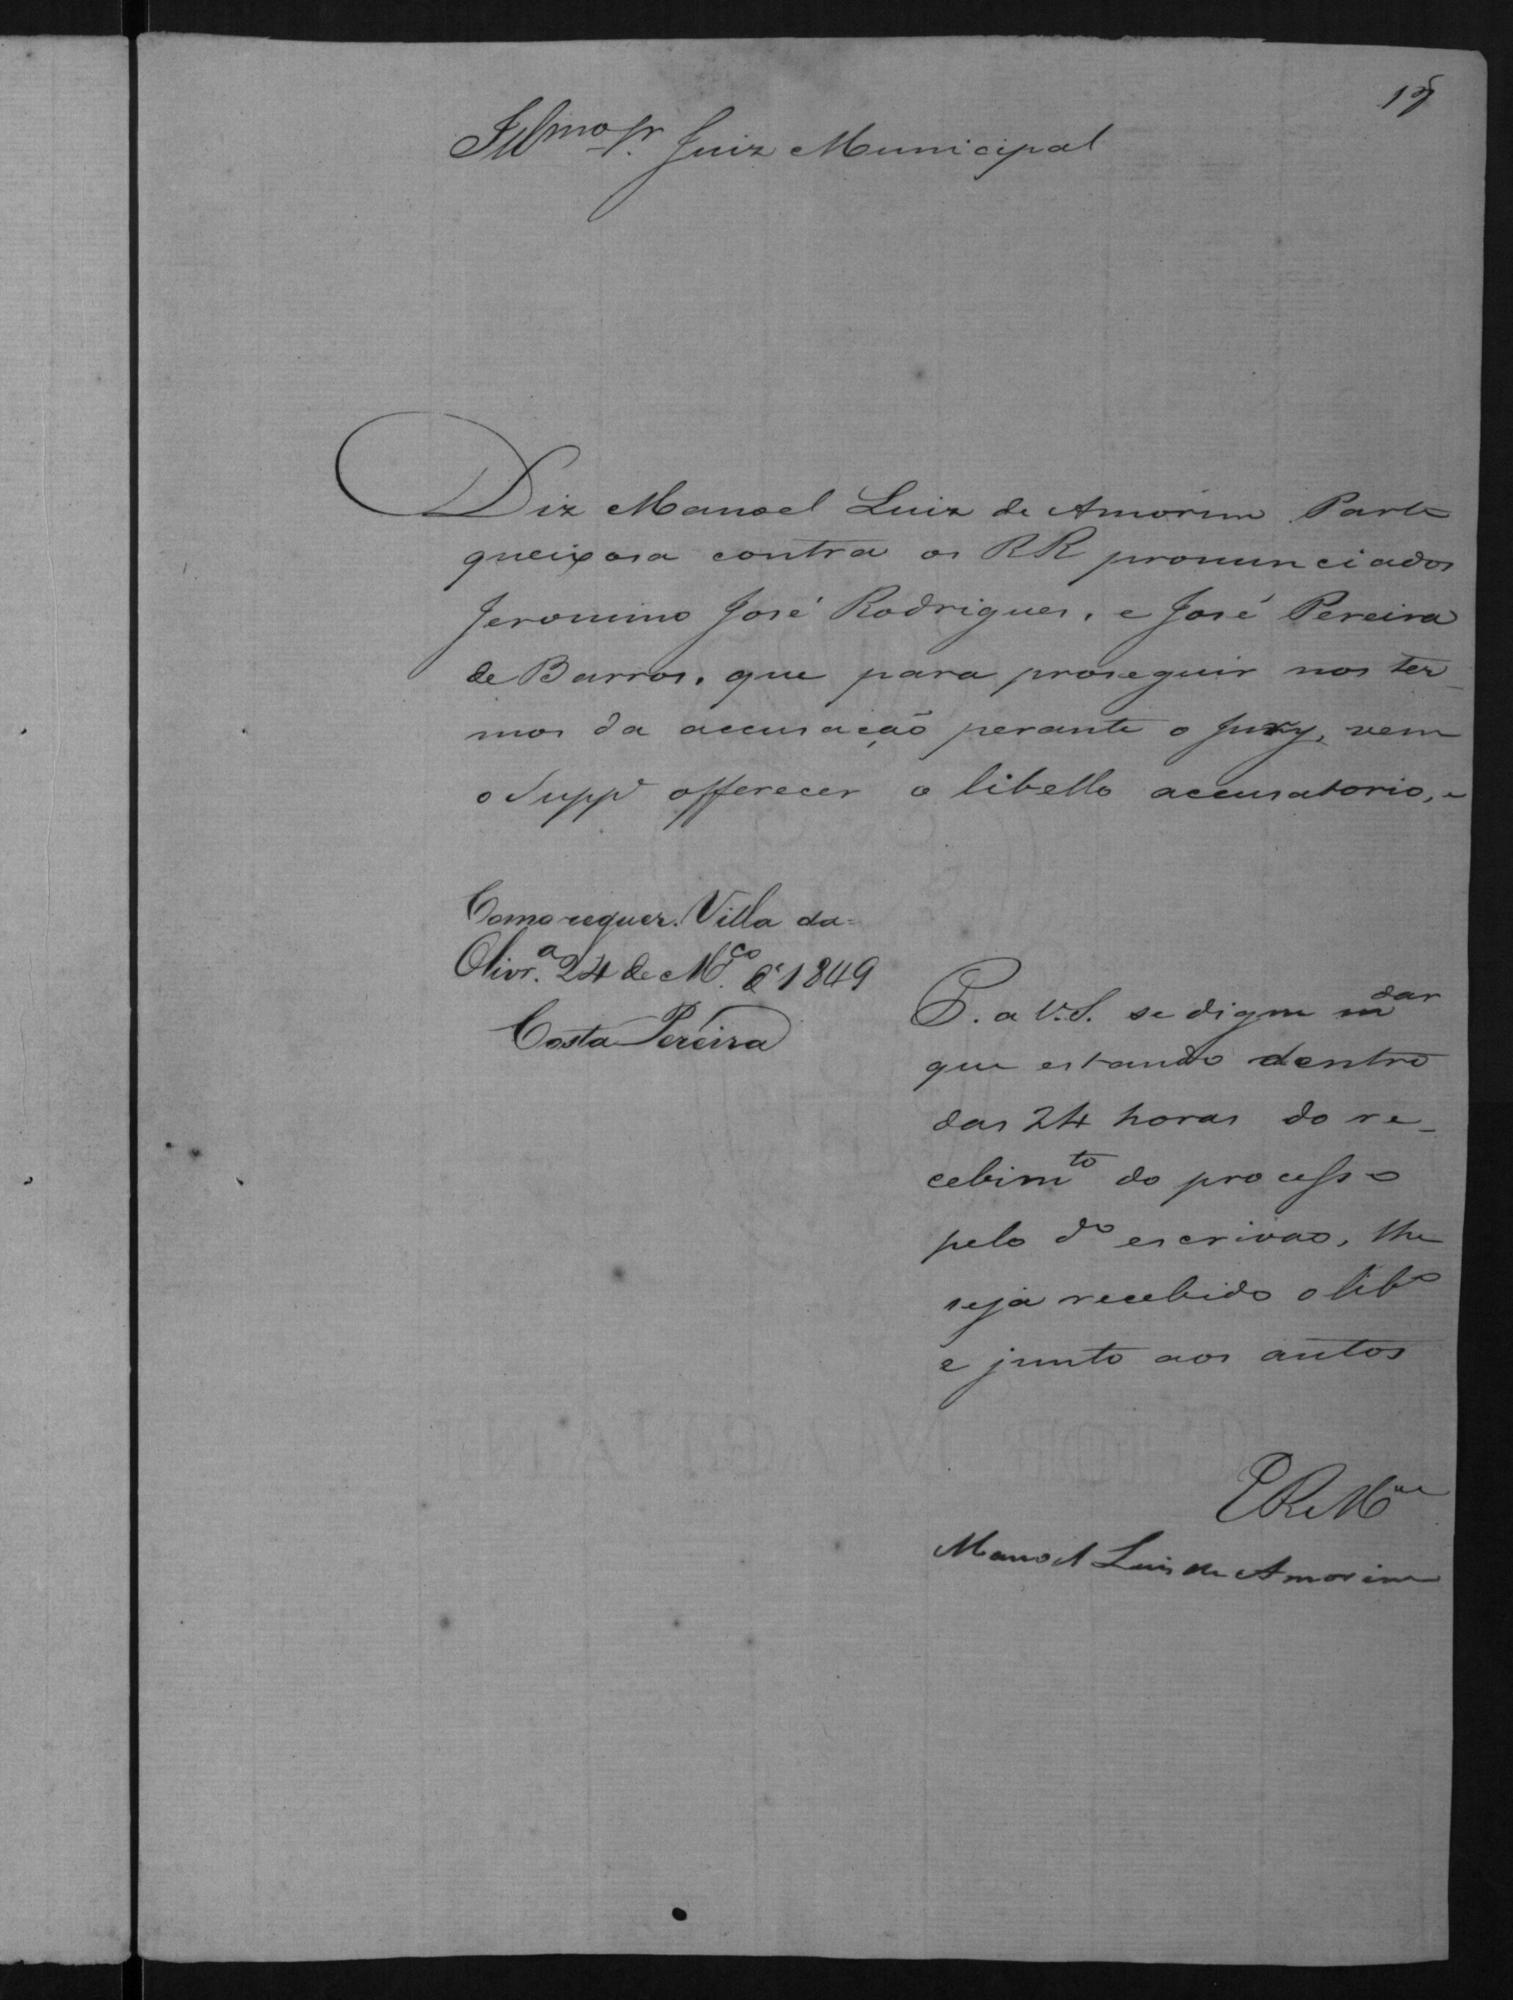 19
Illmo Sr. Juiz Municipal
Diz Manoel Luiz de Amorim Parte
queixosa contra os RR pronunciados
Jeronimo José Rodrigues, e José Pereira
de Barros, que para proseguir nos ter_
mos da accusação perante o Jury, vem
o Suppe offerecer o libello accusatorio, e
Como requer. Villa da=
Olivr.a 24 de M.ço de 1849
Costa Pereira
P. a V.S. se digne mdar
que estando dentro
das 24 horas do re_
cebimto do processo
pelo do escrivao, lhe
seja recebido o libo
e junto aos autos
E R Mce
Manoel Luis de Amorim